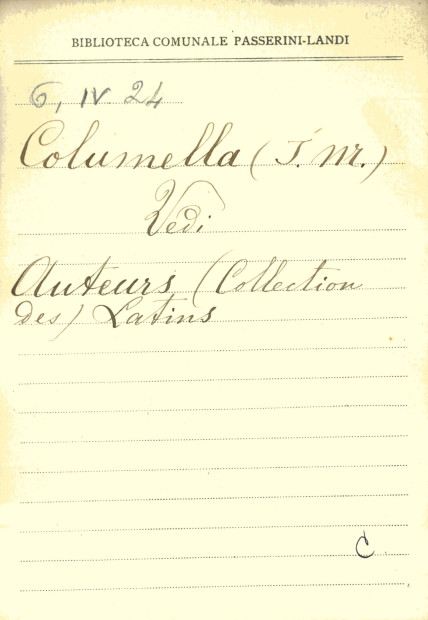 BIBLIOTECA COMUNALE PASSERINI-LANDI
6, IV 24
Columella (J. M.)
Vedi
Auteurs (Collection
des) Latins
C